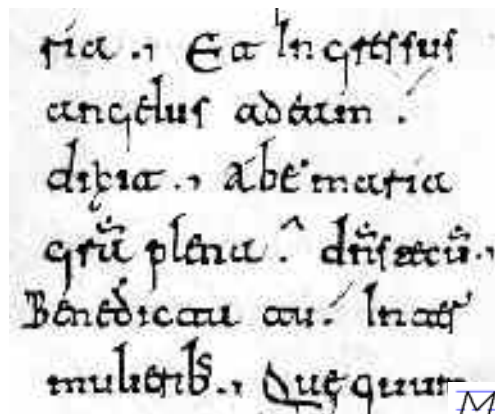 ria ., Et Ingressus
angelus ad eam .
dixit ., Abe maria
grã plena . dñs tecũ .,
Benedicta tu . Inter
mulieribs ., Que quum